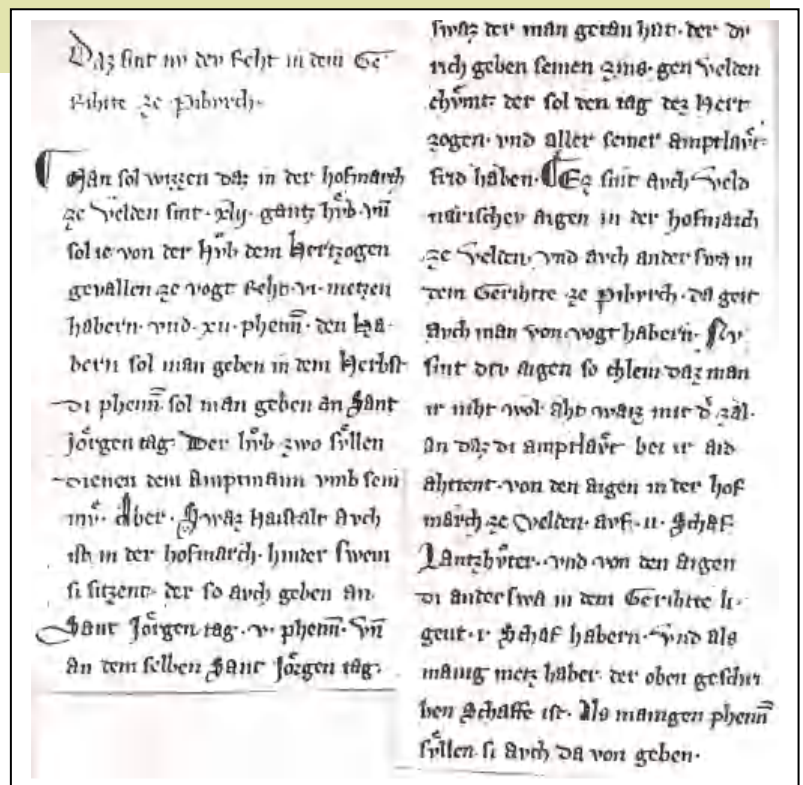 Daz sint nv dev Reht in dem Ge
rihtte ze Pibvrch.
Man sol wizzen daz in der hofmarch
ze Velden sint xlij gantz hvͦb vnͫ
sol ie von der Hvͦb dem Hertzogen
gevallen ze vogt Reht vi metzen
habern vnd xii phenn̄ den Ha-
bern sol man geben in dem Herbst
di phenn̄ sol man geben an Sant
Joͤrgen tag Der hvͦb zwo svͤllen
dienen dem Amptmann vmb sein
mvͤ Aber Swaz Haistalt Avch
ist in der hofmarch hinder swem
si sitzent der so avch geben an
Sant Joͤrgen tag v phenn̄ vn̄
an dem selben Sant Joͤrgen tag
swaz der man getan hat der dv
rich geben seinen zins gen Velden
chvͤmt der sol den tag dez Hert
zogen vnd aller seiner Amptlavͤt
frid haben Ez sint Avch Veld
narischev Aigen in der hofmarch
ze Velden vnd avch ander swa in
dem Gerihtte ze Pibvrch da geit
avch man von vogt habern Nv
sint dev Aigen so chlein daz man
ir niht wol Aht waiz mit dͤ zal
An daz di Amptlavͤt bei ir aid
ahttent von den Aigen in der hof
march ze Velden avf ii Schaf
Lantzhvͤter vnd von den Aigen
di ander swa in dem Gerihtte li-
gent i Schaf habern vnd als
manig metz haber der oben geschri
ben Schaffe ist Als manigen phenn̄
svͤllen si avch da von geben